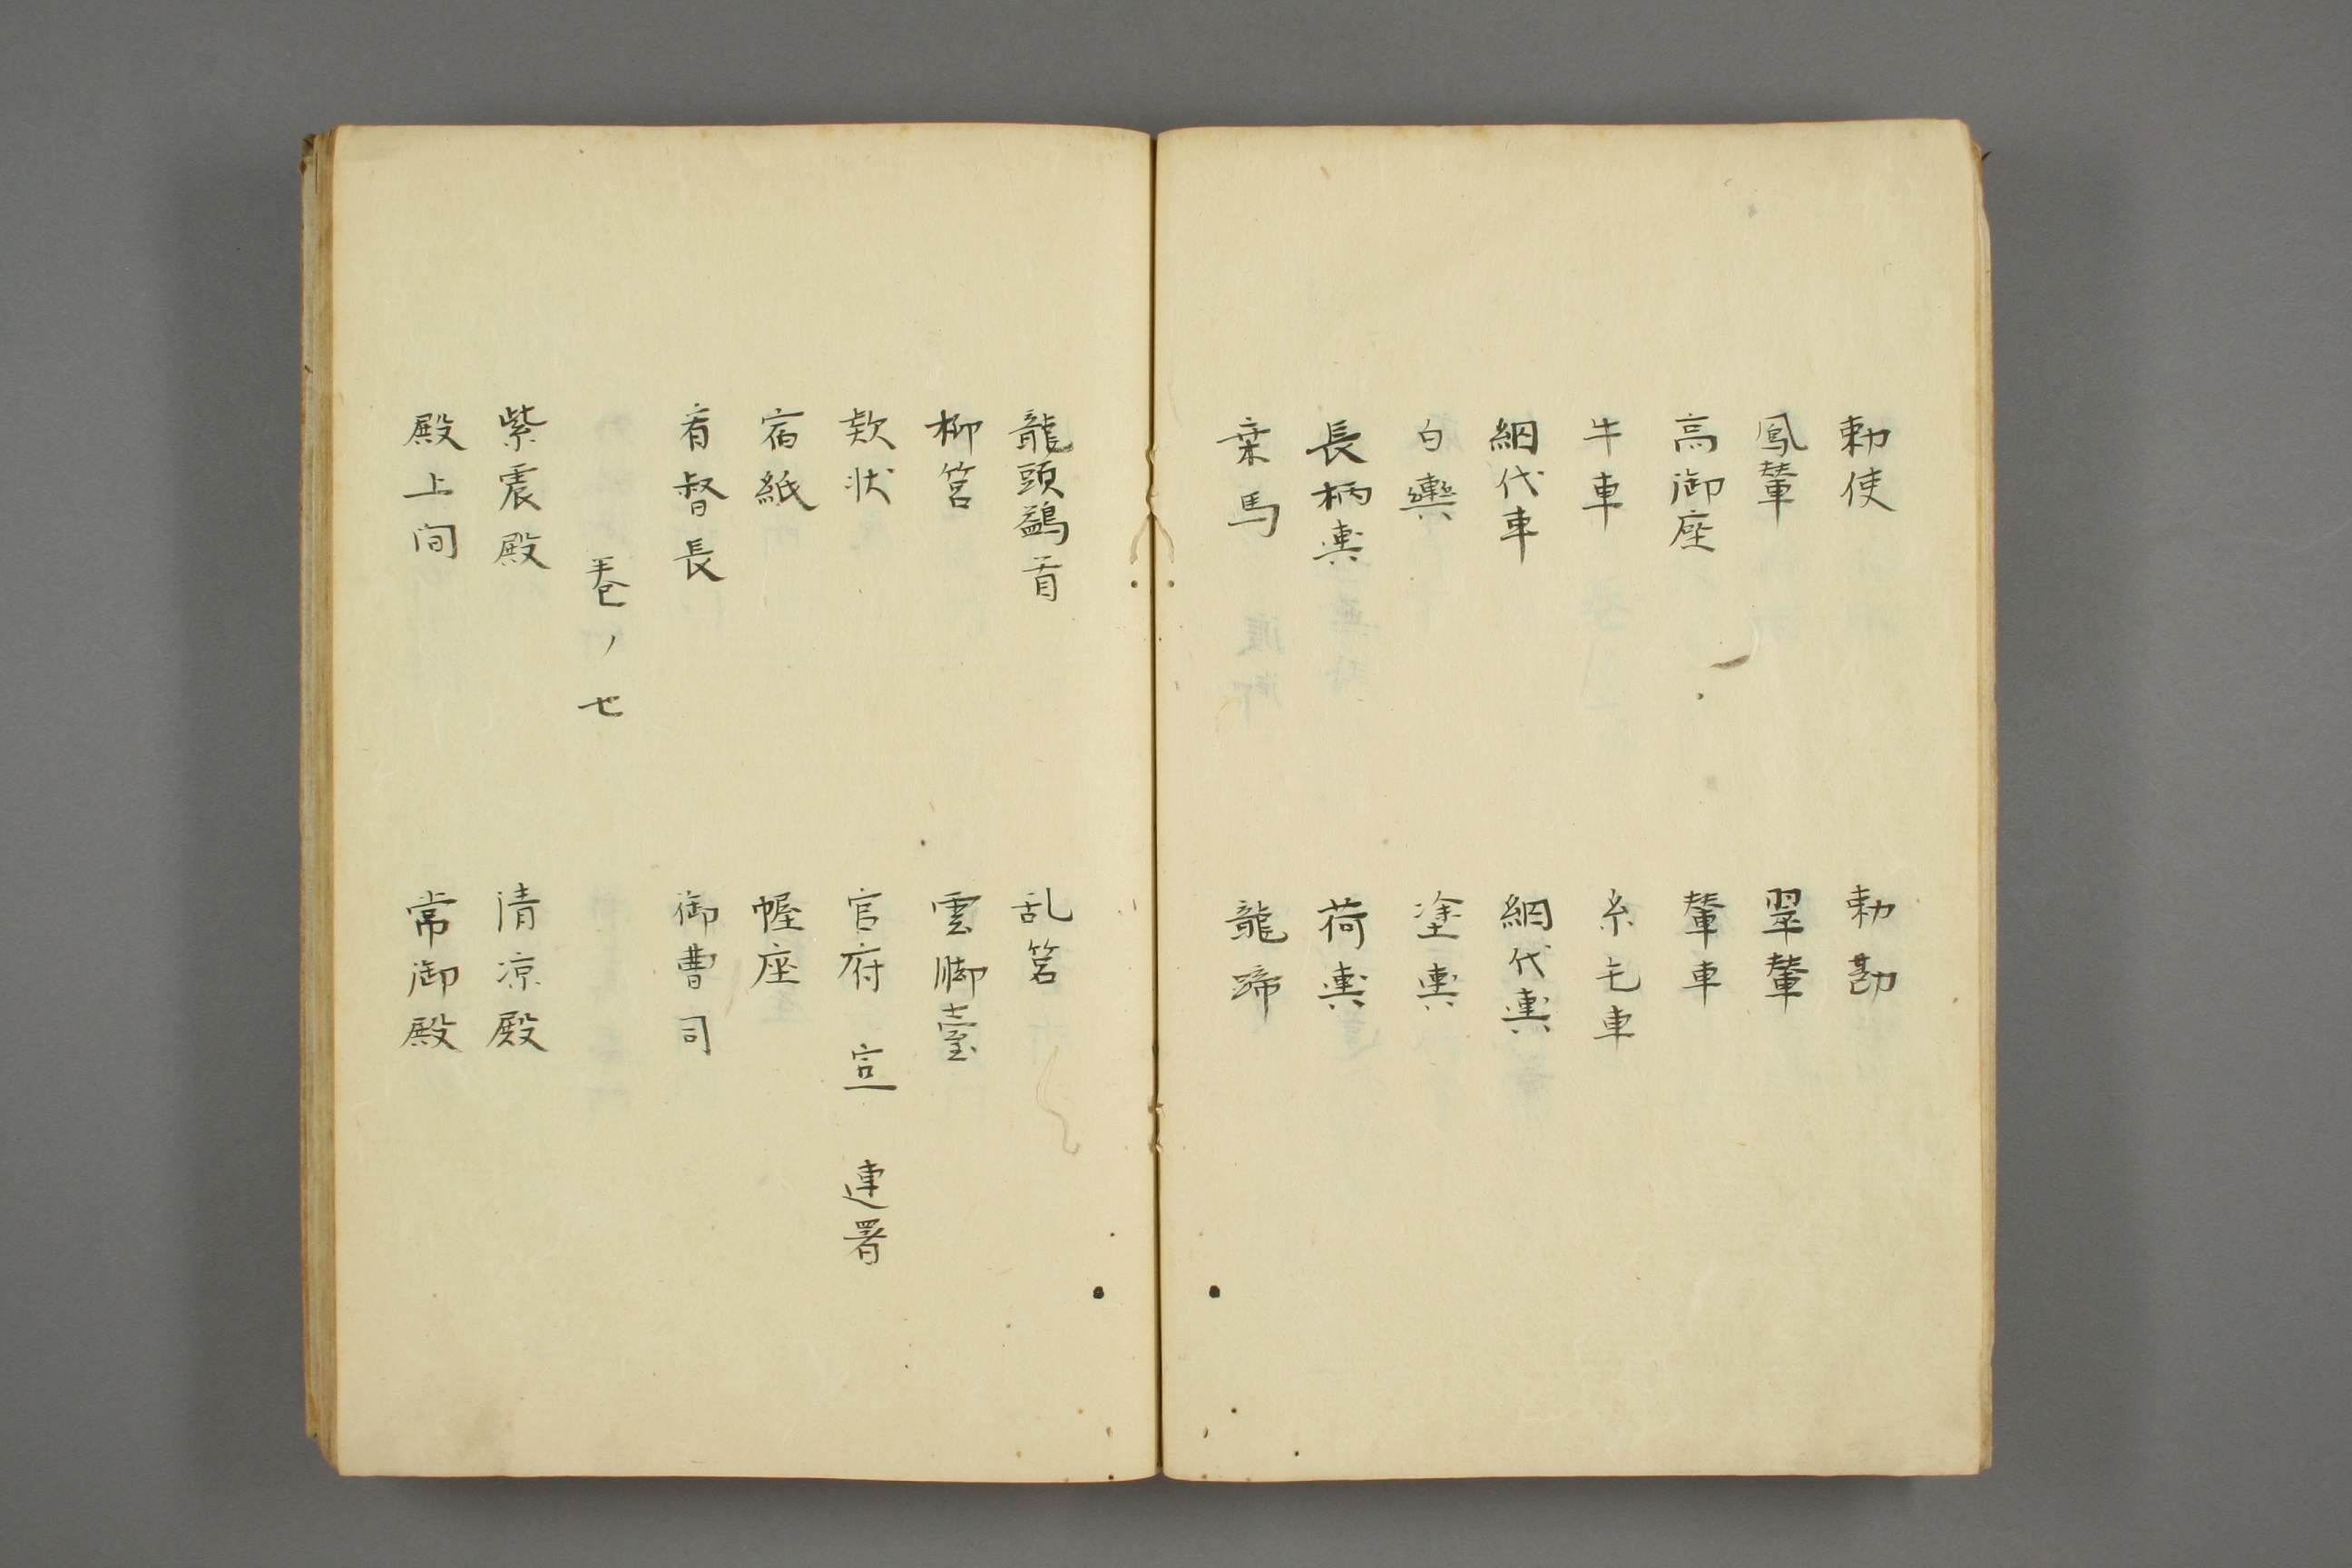 勅使　勅勘
鳳輦　翠輦
高御座　輦車
牛車　糸毛車
網代車　網代輿
白輿　塗輿
長柄輿　荷輿
乗馬　龍蹄
龍頭鷁首　乱筥
柳筥　雲脚臺
欵状　官府　宣　連署
宿紙　幄座
看督長　御曹司
巻ノ七
紫震殿　清凉殿
殿上間　常御殿